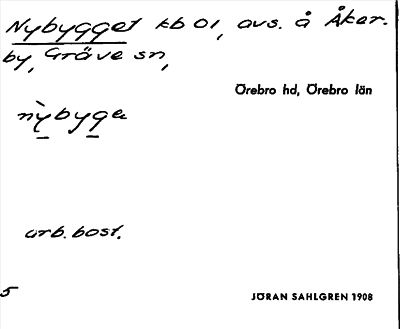 Nybygget kb 01, avs. å Åker-
by, Gräve sn,
Örebro hd, Örebro län
nỳbyga
arb.bost.
5
JÖRAN SAHLGREN 1908